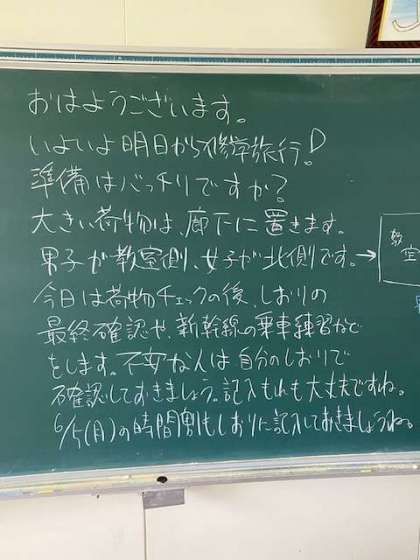 おはようございます。
いよいよ明日から修学旅行!
準備はバッチリですか?
大きい荷物は、廊下に置きます。
男子が教室側、女子が北側です。→
教室
今日は荷物チェックの後、しおりの
最終確認や、新幹線の乗車練習など
をします。不安な人は自分のしおりで
確認しておきましょう。記入もれも大丈夫ですね。
6/5(月)の時間割もしおりに記入しておきましょうね。